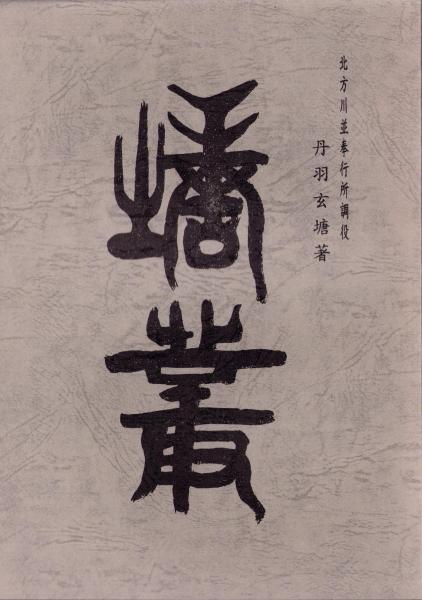 北方川並奉行所調役
丹羽玄塘著
叢